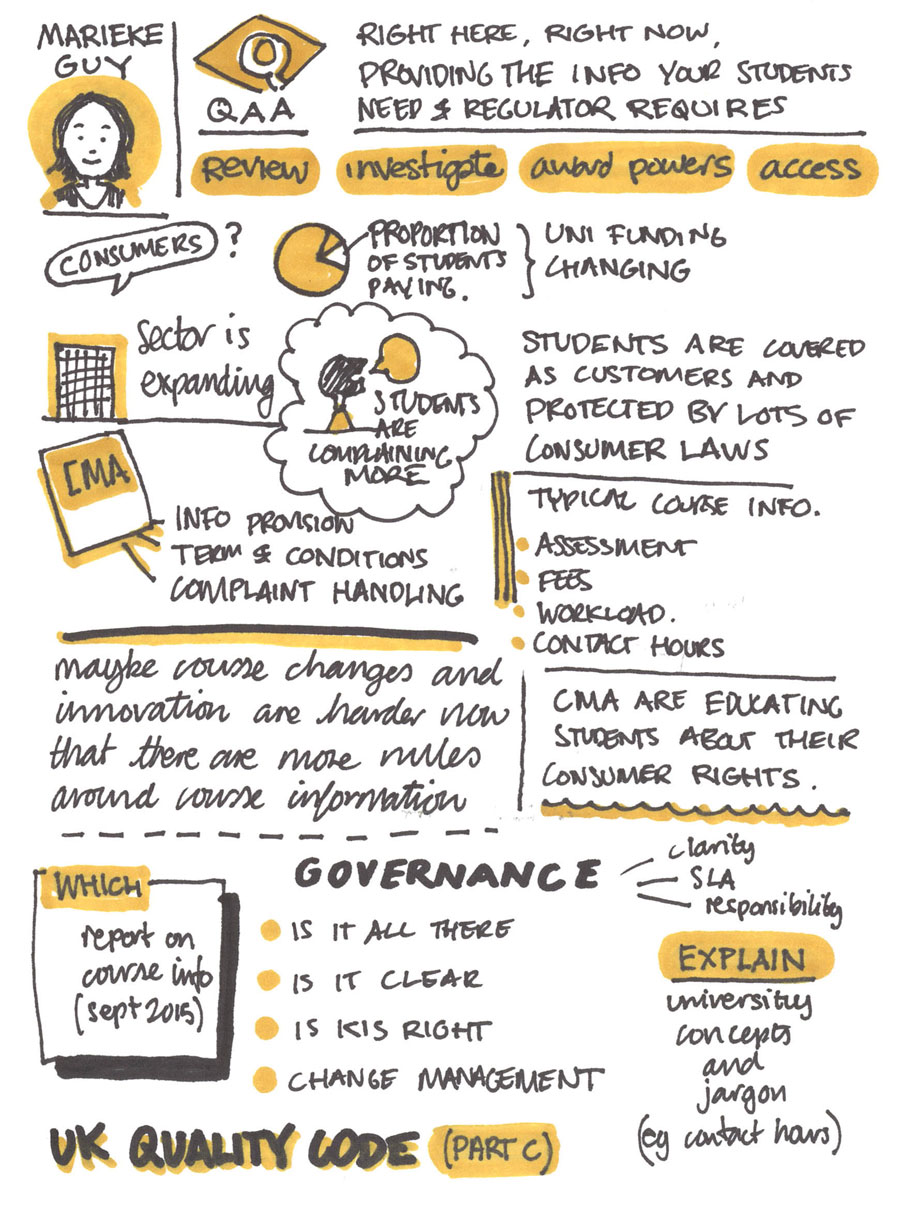 MARIEKE
GUY
Q
QAA
RIGHT HERE, RIGHT NOW,
PROVIDING THE INFO YOUR STUDENTS
NEED & REGULATOR REQUIRES
review investigate award powers access
CONSUMERS ?
PROPORTION
OF STUDENTS
PAYING.
UNI FUNDING
CHANGING
Sector is
expanding
STUDENTS
ARE
COMPLAINING
MORE
STUDENTS ARE COVERED
AS CUSTOMERS AND
PROTECTED BY LOTS OF
CONSUMER LAWS
CMA
INFO PROVISION
TERM & CONDITIONS
COMPLAINT HANDLING
TYPICAL COURSE INFO.
ASSESSMENT
FEES
WORKLOAD.
CONTACT HOURS
maybe course changes and
innovation are harder now
that there are more rules
around course information
CMA ARE EDUCATING
STUDENTS ABOUT THEIR
CONSUMER RIGHTS.
WHICH
report on
course info
(sept 2015)
GOVERNANCE
clarity
SLA
responsibility
IS IT ALL THERE
IS IT CLEAR
IS KIS RIGHT
CHANGE MANAGEMENT
EXPLAIN
university
concepts
and
jargon
(eg contact hours)
UK QUALITY CODE (PART C)